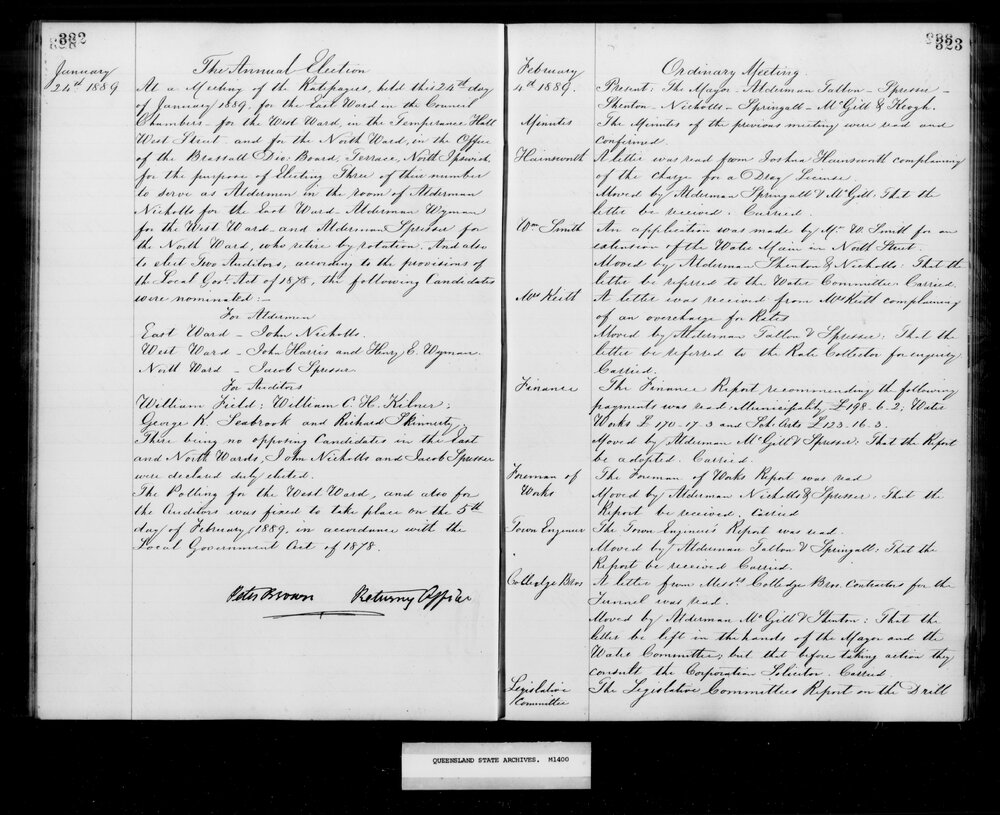 322
January
24th 1889
The Annual Election
At a Meeting of the Ratepayers, held this 24th day
of January 1889, for the East Ward in the Council
Chambers - for the West Ward, in the Temperance Hall
West Street and for the North Ward, in the Office
of the Brassall Div: Board, Terrace, North Ipswich,
for the purpose of Electing Three of their number
to serve as Aldermen in the room of Alderman
Nicholls for the East Ward - Alderman Wyman
for the West Ward - and Alderman Spresser for
the North Ward, who retire by rotation. And also
to elect Two Auditors, according to the provisions of
the Local Govt Act of 1878, the following Candidates
were nominated:-
For Aldermen
East Ward - John Nicholls.
West Ward - John Harris and Henry E. Wyman.
North Ward - Jacob Spresser
For Auditors
William Field; William C. H. Kilner;
George R. Seabrook and Richard Skinnerty
There being no opposing Candidates in the East
and North Wards, John Nicholls and Jacob Spresser
were declared duly elected.
The Polling for the West Ward, and also for
the Auditors was fixed to take place on the 5th
day of February 1889, in accordance with the
Local Government Act of 1878.
Peter Brown Returning Officer
323
February
4th 1889.
Ordinary Meeting.
Present: The Mayor - Alderman Tallon - Spresser -
Shenton - Nicholls - Springall - McGill & Keogh.
Minutes
The Minutes of the previous meeting were read and
confirmed.
Hainsworth
A letter was read from Joshua Hainsworth complaining
of the charge for a Dray License.
Moved by Alderman Springall & McGill: That the
letter be received. Carried.
Wm Smith
An application was made by Mr. W. Smith for an
extension of the Water Main in North Street.
Moved by Alderman Shenton & Nicholls: That the
letter be referred to the Water Committee Carried.
Mrs Keith
A letter was received from Mrs Keith complaining
of an overcharge for Rates
Moved by Alderman Tallon & Spresser: That the
letter be referred to the Rate Collector for enquiry
Carried.
Finance
The Finance Report recommending the following
payments was read: Municipality £198.6.2; Water
Works £170-17-3 and Sch: Arts £123.16.3.
Moved by Alderman McGill & Spresser: That the Report
be adopted. Carried.
Foreman of
Works
The Foreman of Works Report was read
Moved by Alderman Nicholls & Spresser: That the
Report be received. Carried
Town Engineer
The Town Engineer's Report was read.
Moved by Alderman Tallon & Springall: That the
Report be received Carried.
Colledge Bros
A letter from Messrs Colledge Bros, Contractors for the
Tunnel was read.
Moved by Alderman McGill & Shenton: That the
letter be left in the hands of the Mayor and the
Water Committee, but that before taking action they
consult the Corporation Solicitor. Carried.
Legislative
Committee
The Legislative Committees Report on the Drill
QUEENSLAND STATE ARCHIVES. M1400